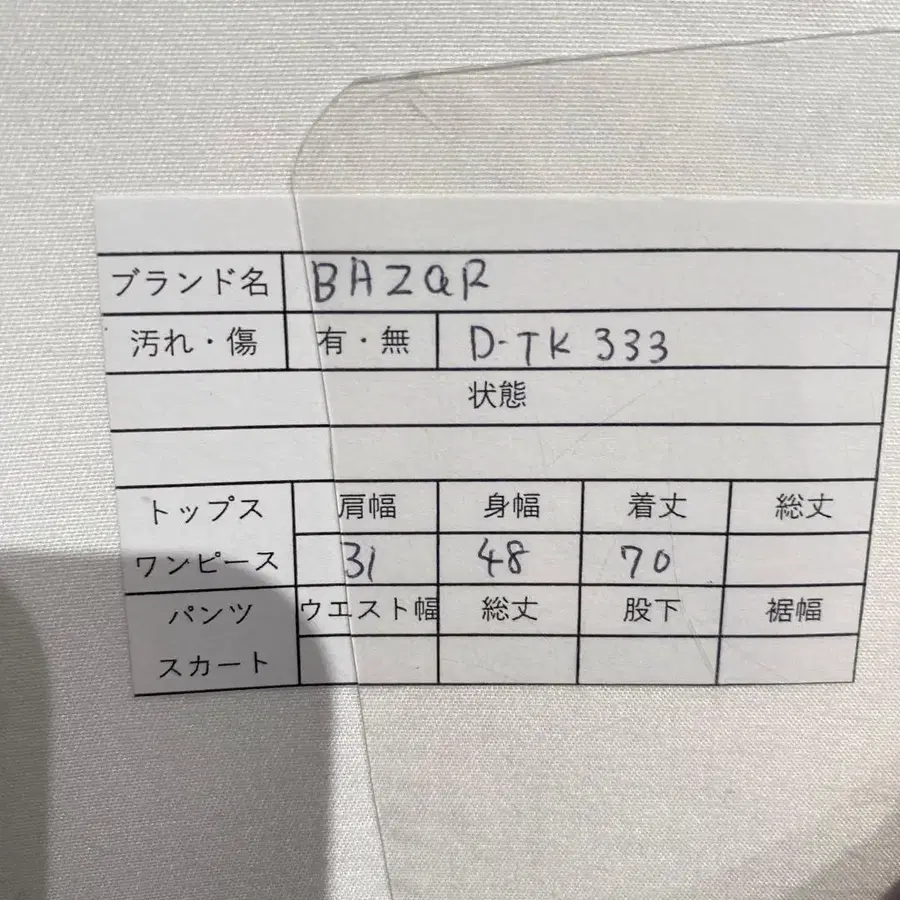 ブランド名 BAZAR
汚れ・傷 有・無 D-TK 333
状態
トップス 肩幅 身幅 着丈 総丈
ワンピース 31 48 70
パンツ ウエスト幅 総丈 股下 裾幅
スカート